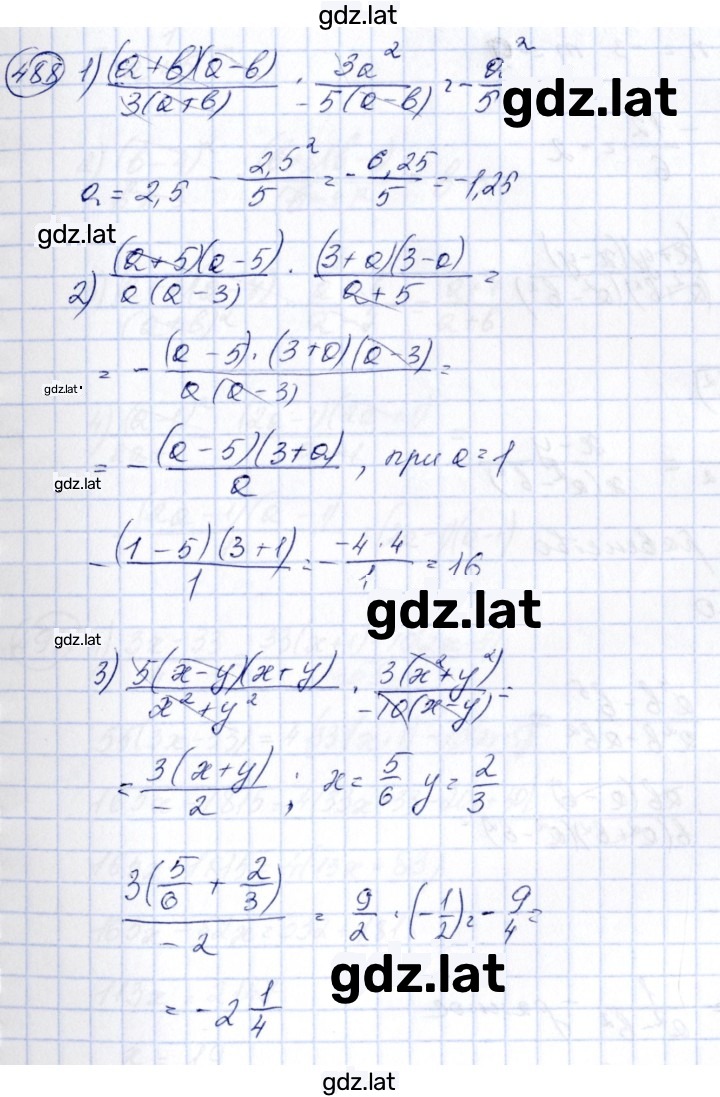 gdz.lat
488 1) (a+b)(a-b)/3(a+b) · 3a²/-5(a-b) = -a²/5
gdz.lat
a = 2,5 - 2,5²/5 = -6,25/5 = -1,25
gdz.lat
2) (a+5)(a-5)/a(a-3) · (3+a)(3-a)/a+5 =
= - (a-5)·(3+a)(a-3)/a(a-3) =
gdz.lat
= - (a-5)(3+a)/a , при a=1
gdz.lat
- (1-5)(3+1)/1 = - -4·4/1 = 16
gdz.lat
gdz.lat
3) 5(x-y)(x+y)/x²+y² · 3(x²+y²)/-10(x-y) =
= 3(x+y)/-2 ; x = 5/6 y = 2/3
3(5/6 + 2/3)/-2 = 9/2 · (-1/2) = -9/4 =
gdz.lat
= -2 1/4
gdz.lat